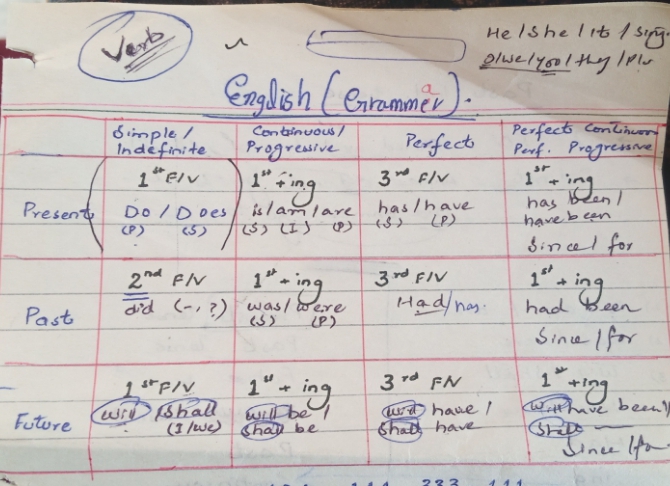 Verb
He/She/It/Sing.
I/we/you/they/Plu
English (Grammer).
a
Simple/ Indefinite
Continuous/ Progressive
Perfect
Perfect Continuou Perf. Progressive
Present
1st F/V
Do / Does
(P) (S)
1st + ing
is/am/are
(S) (I) (P)
3rd F/V
has/have
(S) (P)
1st + ing
has been/
have been
Since/for
Past
2nd F/V
did (-, ?)
1st + ing
was/were
(S) (P)
3rd F/V
Had/has.
1st + ing
had been
Since/for
Future
1st F/V
will/Shall
(I/We)
1st + ing
will be/
Shall be
3rd F/V
will have/
Shall have
1st +ing
will have been/
Shall —
Since/for